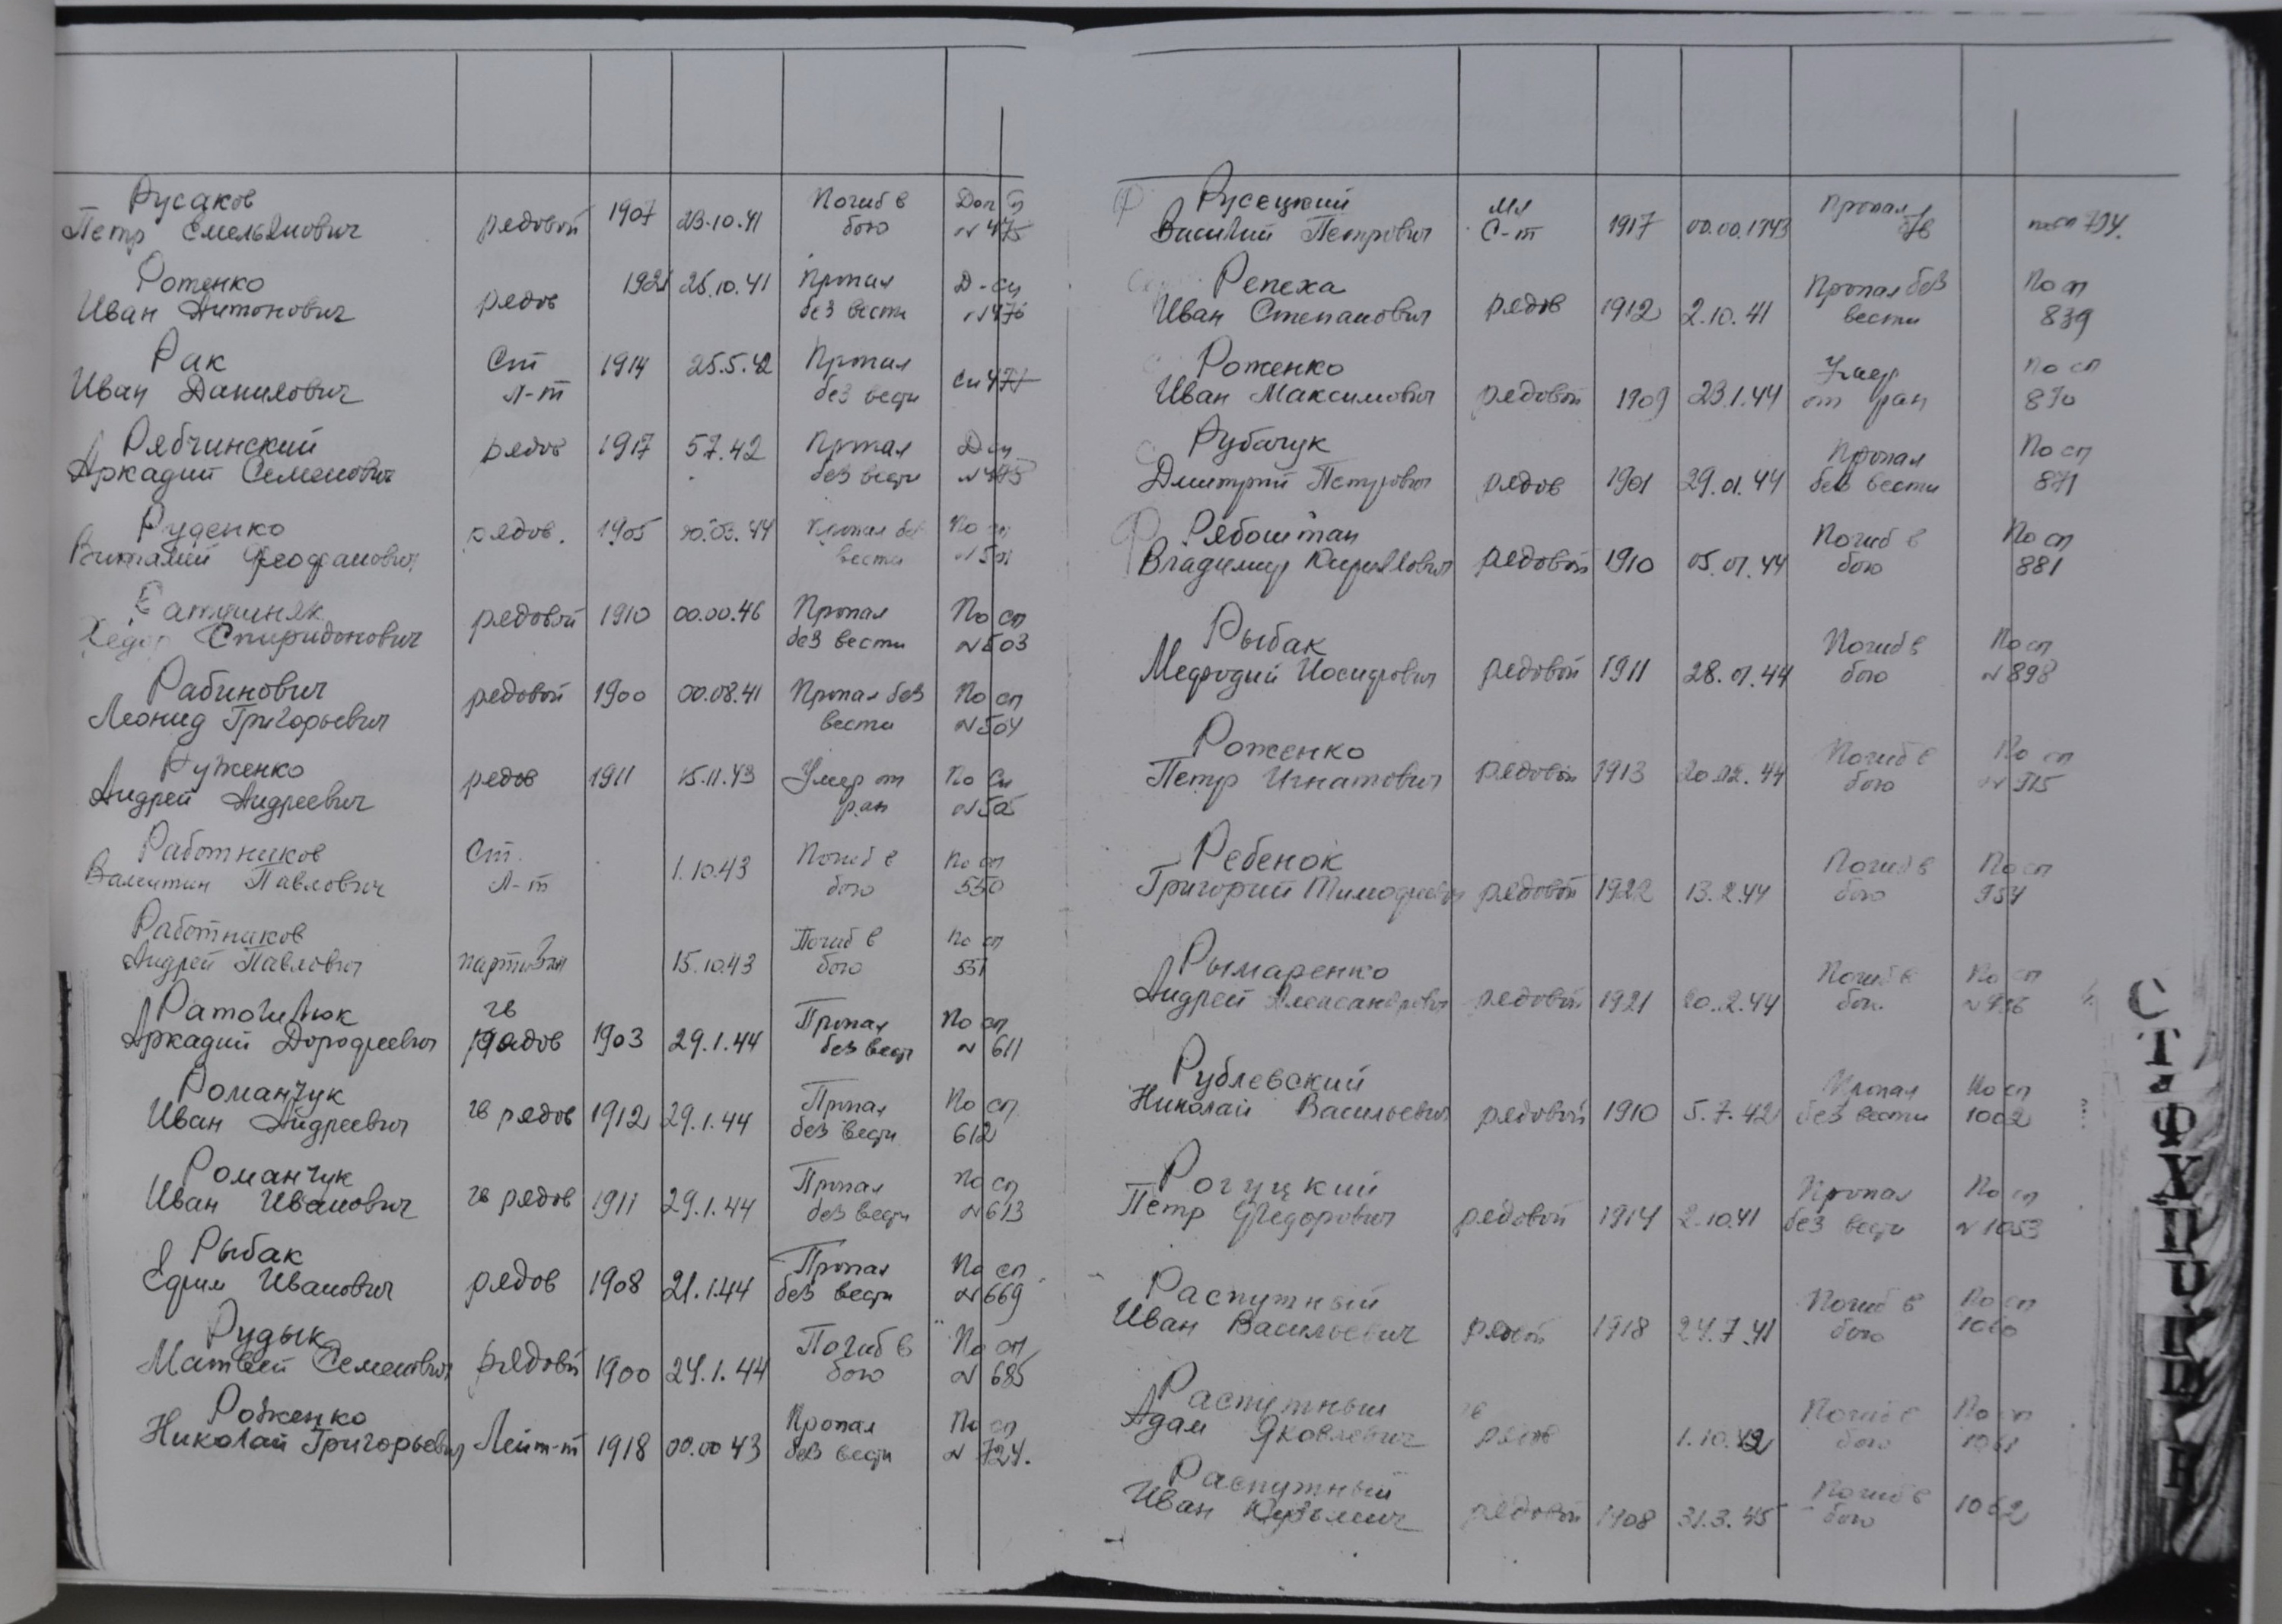 Русаков
Петр Емельянович рядовой 1907 23.10.41 Погиб в бою Доп №475
Ротенко
Иван Антонович рядов 1921 25.10.41 Пропал без вести Д-сп №476
Рак
Иван Данилович Ст Л-т 1914 25.5.42 Пропал без вести Сп 477
Рябчинский
Аркадий Семенович рядов 1917 5.7.42 Пропал без вести
Руденко
Виталий Феофанович рядов. 1905 03.44 Пропал без вести По сп
Спиридонович рядовой 1910 00.00.46 Пропал без вести По сп №503
Рабинович
Леонид Григорьевич рядовой 1900 00.08.41 Пропал без вести По сп №504
Руженко
Андрей Андреевич рядов 1911 15.11.43 Умер от ран По сп №505
Работников
Валентин Павлович Ст. Л-т 1.10.43 Погиб в бою По сп 550
Работников
Андрей Павлович партизан 15.10.43 Погиб в бою По сп 551
Ратогилюк
Аркадий Дорофеевич гв рядов 1903 29.1.44 Пропал без вести По сп № 611
Романчук
Иван Андреевич гв рядов 1912 29.1.44 Пропал без вести По сп 612
Романчук
Иван Иванович гв рядов 1911 29.1.44 Пропал без вести По сп №613
Рыбак
Ефим Иванович рядов 1908 21.1.44 Пропал без вести По сп №669
Рудык
Матвей Семенович рядовой 1900 24.1.44 Погиб в бою По сп № 685
Роженко
Николай Григорьевич Лейт-т 1918 00.00 43 Пропал без вести По сп № 724.
Русецкий
Василий Петрович Мл С-т 1917 00.00.1943 Пропал
Репеха
Иван Степанович рядов 1912 2.10.41 Пропал без вести По сп 839
Роженко
Иван Максимович рядовой 1909 23.1.44 Умер от ран По сп 870
Рубачук
Дмитрий Петрович рядов 1901 29.01.44 Пропал без вести По сп 871
Рябоштан
Владимир Кириллович рядовой 1910 05.01.44 Погиб в бою По сп 881
Рыбак
Мефодий Иосифович рядовой 1911 28.01.44 Погиб в бою По сп №898
Роженко
Петр Игнатович рядовой 1913 20.12.44 Погиб в бою По сп № 915
Ребенок
Григорий Тимофеевич рядовой 1922 13.2.44 Погиб в бою По сп 954
Рымаренко
Андрей Александрович рядовой 1921 20.2.44 Погиб в бою По сп
Рублевский
Николай Васильевич рядовой 1910 5.7.42 Пропал без вести По сп 1002
Рогуцкий
Петр Федорович рядовой 1914 2.10.41 Пропал без вести По сп № 1053
Распутный
Иван Васильевич рядовой 1918 24.7.41 Погиб в бою По сп 1060
Распутный
Адам Яковлевич гв рядов 1.10.42 Погиб в бою По сп 1061
Распутный
Иван Кузьмич рядовой 1908 31.3.45 Погиб в бою 1062
С
Т
Ф
Х